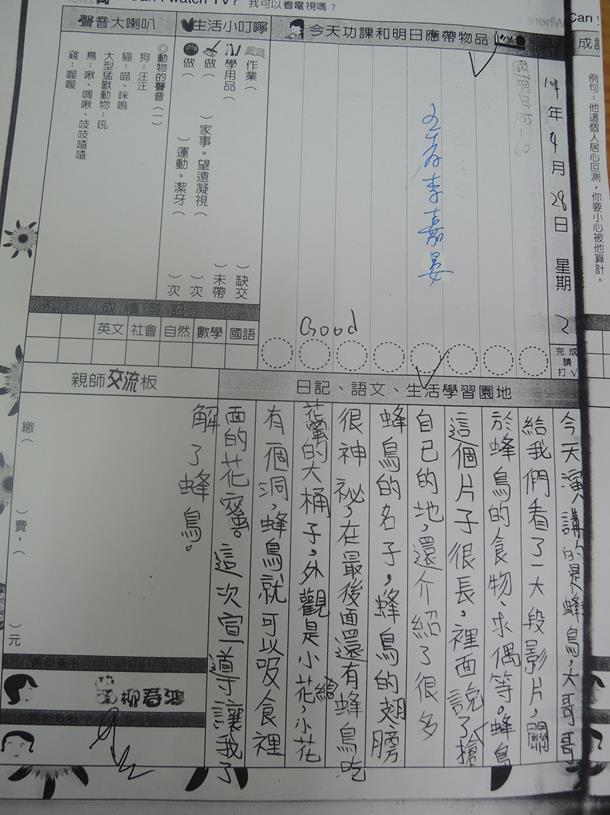 Can I watch TV? 我可以看電視嗎？
Can y
成語
例句：他這個人居心叵測，你要小心被他算計。
104年4月28日 星期2
完成請打✓
今天功課和明日應帶物品
李嘉晏
Good
生活小叮嚀
作業（ ）缺交
學用品（ ）未帶
做（ ）家事。望遠凝視（ ）次
做（ ）運動。潔牙（ ）次
聲音大喇叭
◎動物的聲音（一）
狗：汪汪
貓：喵、咪嗚
大型猛獸動物：吼
鳥：啾、啁啾、吱吱喳喳
雞：喔喔
成績登記
國語
數學
自然
社會
英文
日記、語文、生活學習園地
今天演講的是蜂鳥，大哥哥
給我們看了一大段影片，關
於蜂鳥的食物、求偶等。蜂鳥
這個片子很長，裡面說了搶
自己的地，還介紹了很多
蜂鳥的名子，蜂鳥的翅膀
很神祕，在最後面還有蜂鳥吃
花蜜的大桶子，外觀是小花，小花
給
有一個洞，蜂鳥就可以吸食裡
面的花蜜。這次宣導讓我了
解了蜂鳥。
親師交流板
繳（ ）費，（ ）元
柳春鴻